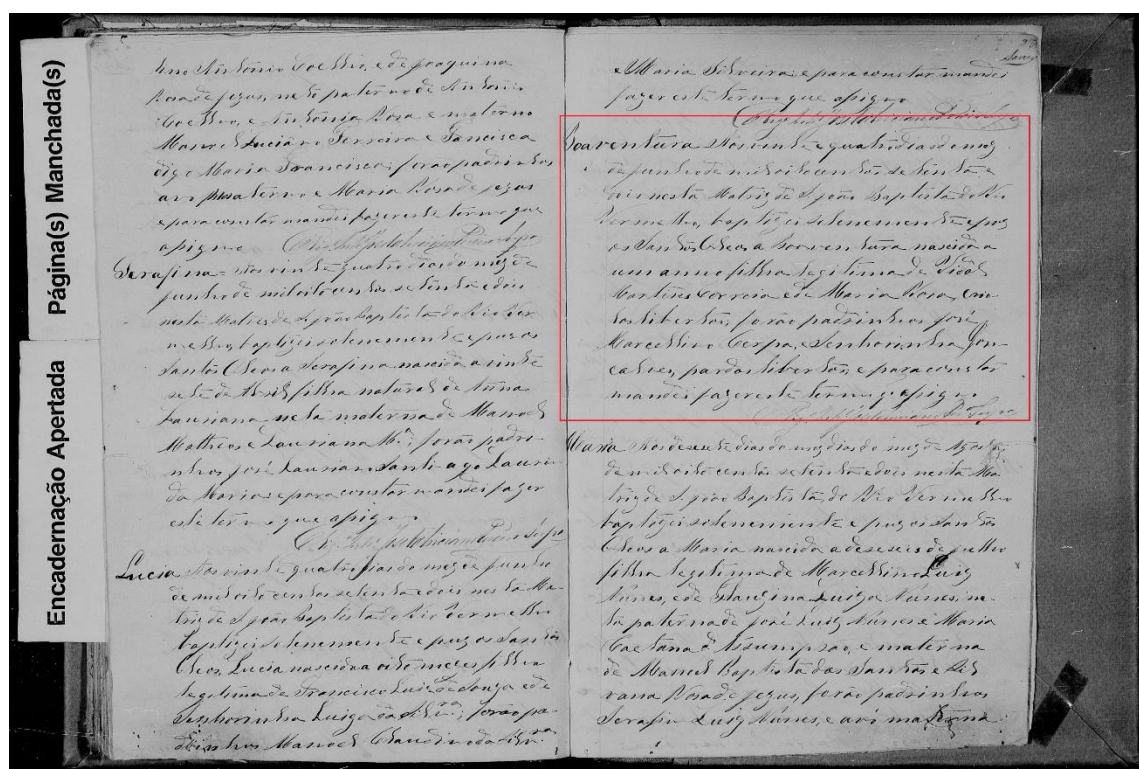 Página(s) Manchada(s)
Encadernação Apertada
lino Antonio Coelho, e de Joaquina
Rosa de Jezus, neto paterno de Antonio
Coelho, e Antonia Rosa e materno
Manoel Luciano Ferreira e Francisca
digo Maria Francisca; forão padrinhos
avo materno e Maria Rosa de Jezus
e para constar mandei fazer este termo que
asigno
Serafina Aos vinte quatro dias do mez de
Junho de mil oito centos setenta e dois
nesta Matris de S. João Baptista do Rio Ver
melho, baptizei solenemente e puz os
Santos Oleos a Serafina nascida a vinte
sete de Abril filha natural de Anna
Lauriana, neta materna de Manoel
Matheos e Lauriana Mª, forão padri-
nhos José Laurian
da Maria e para constar mandei fazer
este termo que asigno
Lucia Aos vinte quatro dias do mez de Junho
de mil oito centos setenta e dois nesta Ma-
triz de S. João Baptista do Rio Vermelho
baptizei solenemente e puz os Santos
Oleos, Lucia nascida a oito mezes filha
legitima de Francisco Luiz de Souza e de
Senhorinha Luiza da Silvª, forão pa-
drinhos Manoel Claudino da Silvª
e Maria Silveira; e para constar mandei
fazer este termo que asigno
Boaventura Aos vinte e quatro dias do mez
de Junho de mil oito centos setenta e
dois nesta Matriz de S. João Baptista do Rio
Vermelho, baptizei solenemente e puz
os Santos Oleos a Boaventura nascido a
um anno filho legitimo de
Martins Correia e de Maria Rosa, crio
los libertos, forão padrinhos José
Marcellino Cerpa, e Senhorinha Gon
calves, pardos libertos, e para constar
mandei fazer este termo q asigno
Maria Aos deseseis dias do mez dias do mez de Agosto
de mil oito centos setenta e dois nesta Ma
triz de S. João Baptista, do Rio Vermelho
baptizei solenemente e puz os Santos
Oleos a Maria nascida a deseseis de Julho
filha legitima de Marcellino Luiz
Nunes, e de Luiza Nunes, ne-
ta paterna de José Luiz Nunes e Maria
Caetana d Assumpsão, e materna
de Manoel Baptista dos Santos e Sil
vana Rosa de Jezus, forão padrinhos
Serafim Luiz Nunes, e avó materna